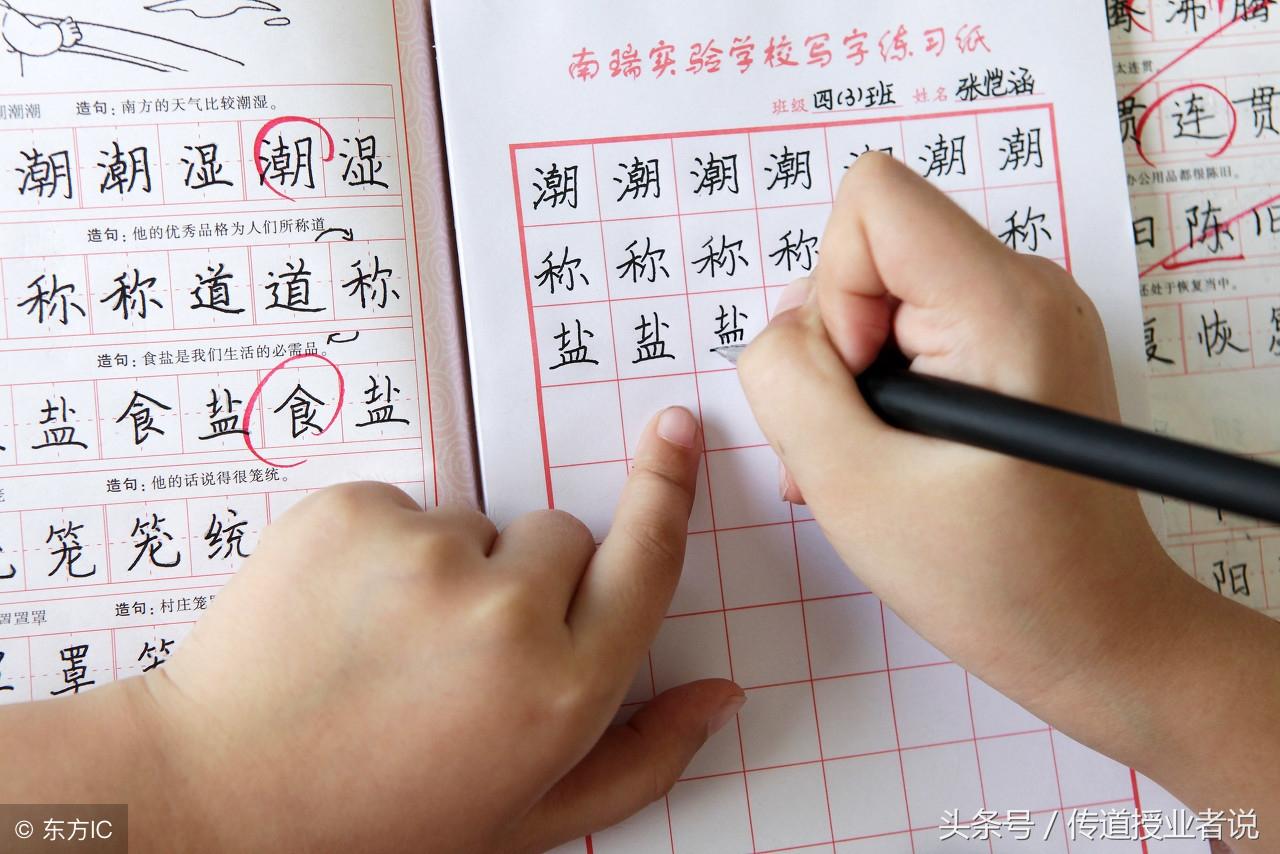 潮潮 造句：南方的天气比较潮湿。
潮 潮 湿 潮 湿
造句：他的优秀品格为人们所称道
称 称 道 道 称
造句：食盐是我们生活的必需品。
盐 食 盐 食 盐
造句：他的话说得很笼统。
笼 笼 统
置置罩 造句：村庄笼
罩
南瑞实验学校写字练习纸
班级 四(3)班 姓名 张恺涵
潮 潮 潮 潮 潮 潮 潮
称 称 称 称 称
盐 盐 盐
沸 腾
太连贯
贯 连 贯
办公用品都很陈旧。
旧 陈 旧
还处于恢复当中。
复 恢
阳
© 东方IC
头条号 / 传道授业者说